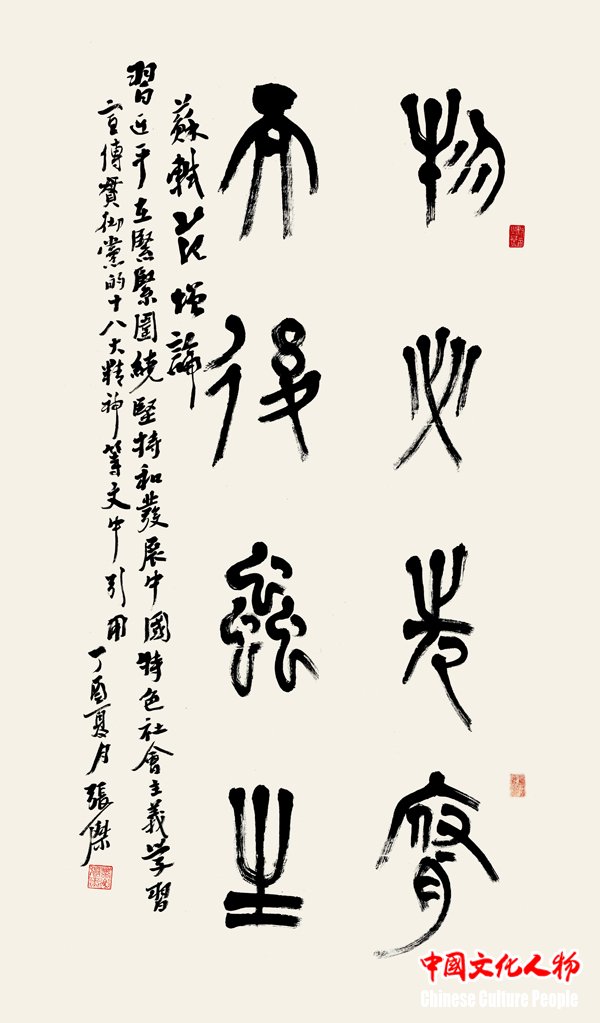 物必先腐
而後蟲生
蘇軾范增論
習近平在緊緊圍繞堅持和發展中國特色社會主義学習
宣傳貫徹黨的十八大精神等文中引用 丁酉夏月張傑
中國文化人物
Chinese Culture People